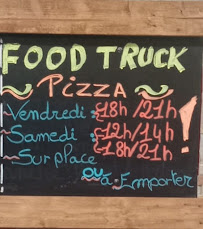 FOOD TRUCK
~ Pizza ~
Vendredi : 18h/21h
Samedi : 12h/14h
18h/21h !
~ Sur place
ou
à Emporter